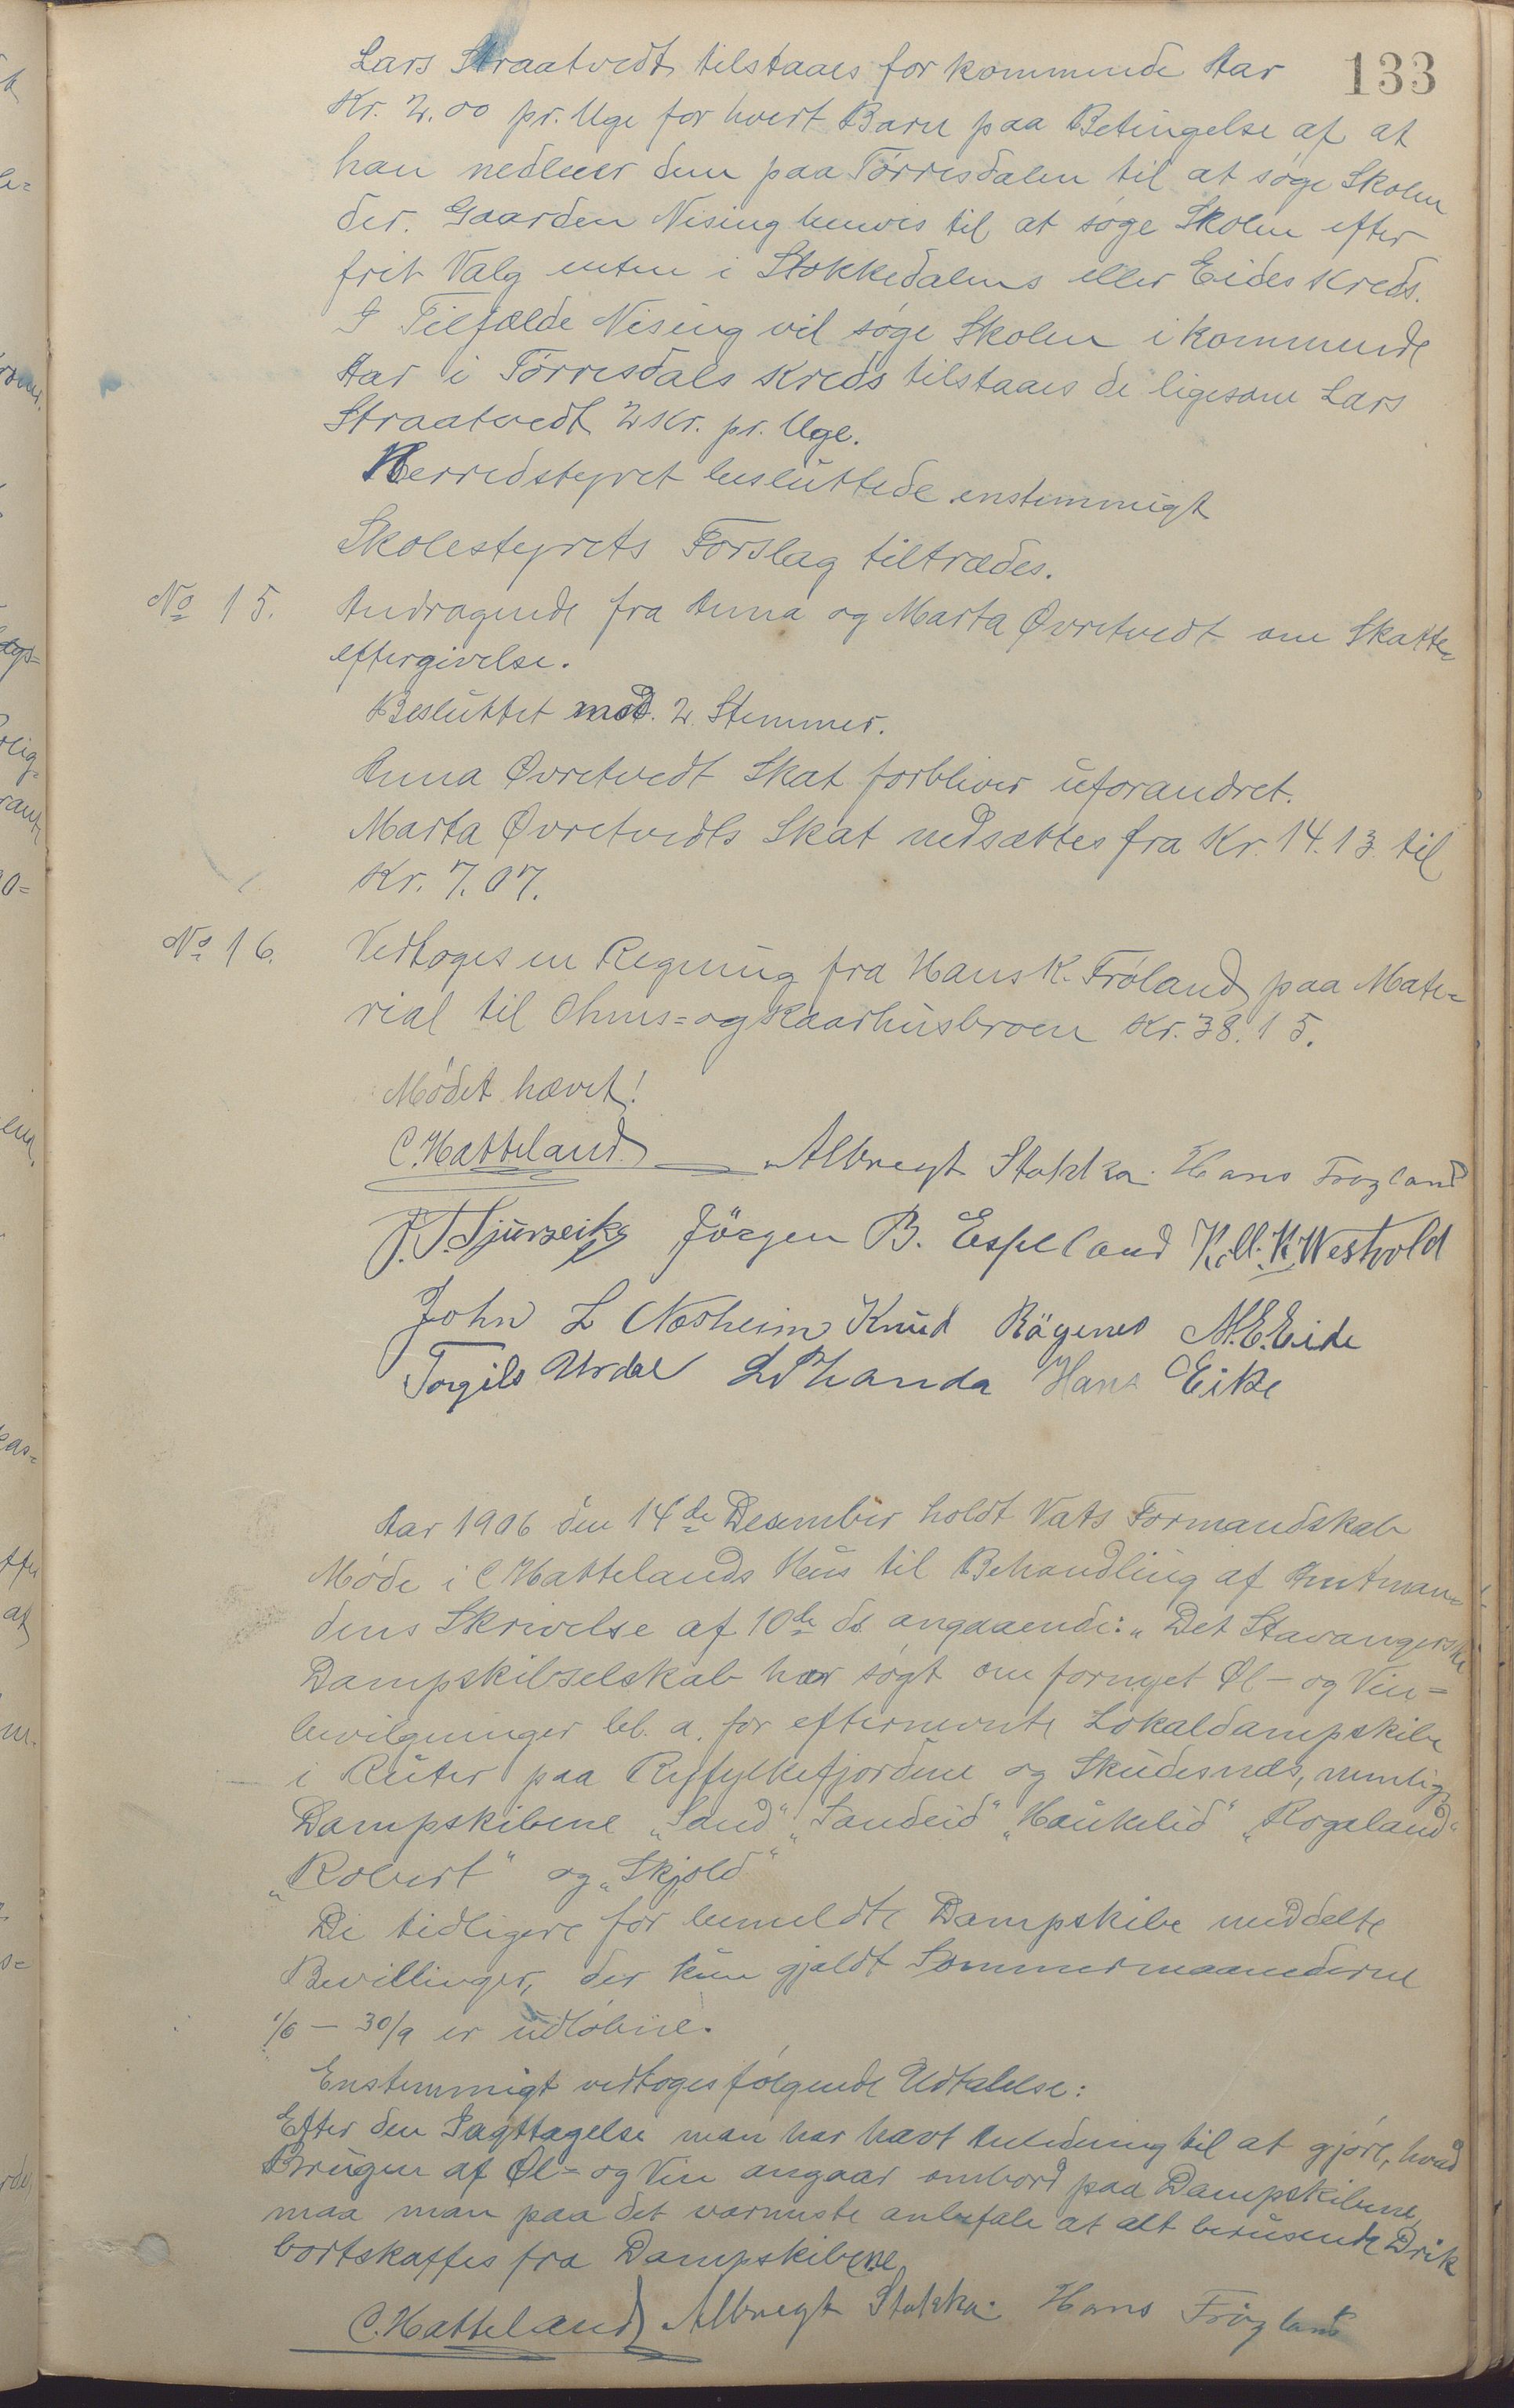 133
Lars Straatvedt tilstaaes for kommende Aar
Kr. 2.00 pr. Uge for hvert Barn paa Betingelse af at
han nedleier dem paa Tørresdalen til at søge Skolen
der. Gaarden Nising henvis til at søge Skolen efter
frit Valg enten i Stokkedalens eller Eides Kreds.
I Tilfælde Nising vil søge Skolen i kommende
Aar i Tørresdals Kreds tilstaaes de ligesom Lars
Straatvedt 2 Kr. pr. Uge.
Herredstyret besluttede enstemmigt
Skolestyrets Forslag tiltrædes.
No 15. Andragende fra Anna og Marta Øvretvedt om Skatte-
eftergivelse.
Besluttet mod. 2 Stemmer.
Anna Øvretvedt Skat forbliver uforandret.
Marta Øvretvedts Skat nedsættes fra Kr. 14.13 til
Kr. 7.07.
No 16. Vedtoges en Regning fra Hans K. Frøland paa Mate-
rial til Ohms= og Kaarhusbroen Kr. 38.15.
Mødet hævet!
C. Hatteland Albregt Stakka Hans Frøgland
J. T. Sjurseike Jörgen B. Espeland K. K. Westvold
John L Nosheim Knud Rägenes M. E. Eide
Torgils Urdal Hans Eike
Aar 1906 den 14de Desember holdt Vats Formandskab
Møde i C Hattelands Hus til Behandling af Amtman-
dens Skrivelse af 10de ds. angaaende: "Det Stavangerske
Dampskibselskab har søgt om fornyet Øl- og Vin=
bevilgninger bl. a. for efternevnte Lokaldampskibe
i Ruter paa Ryfylkefjordene og Skudesnæs, nemlig
Dampskibene "Sand" "Sandeid" "Haukelid" "Rogaland"
"Robert" og "Skjold"
De tidligere for bemeldte Dampskibe meddelte
Bevillinger, der kun gjaldt Sommermaanederne
1/6 - 30/9 er udløbne.
Enstemmigt vedtoges følgende Udtalelse:
Efter den Iagttagelse man har havt Anledning til at gjøre, hvad
Brugen af Øl= og Vin angaar ombord paa Dampskibene,
maa man paa det varmeste anbefale at alt berusende Drik
bortskaffes fra Dampskibene
C. Hatteland Albregt Stakka Hans Frøgland